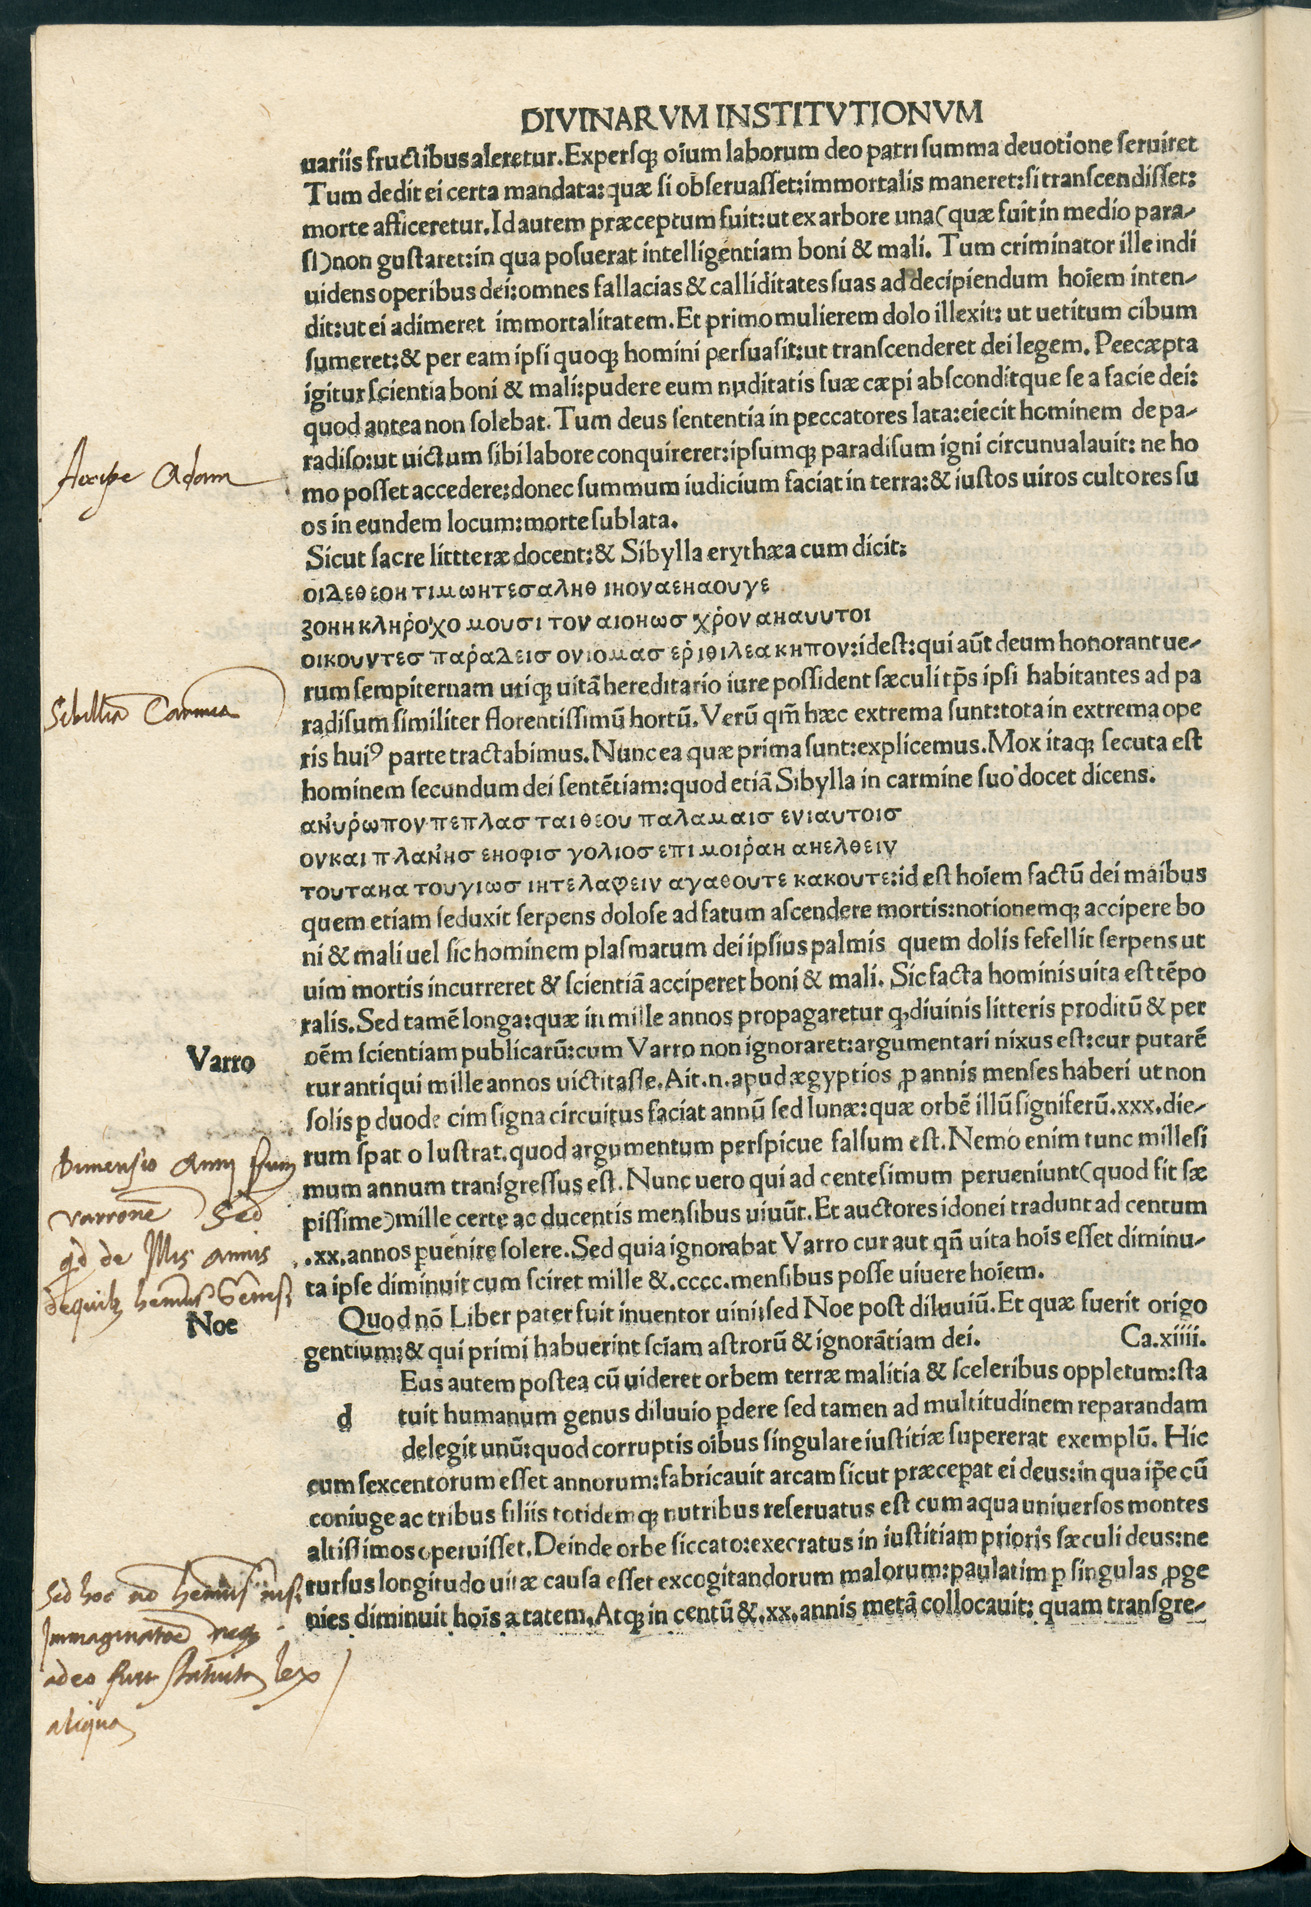 DIVINARVM INSTITVTIONVM
uariis fructibus aleretur. Expersq; oīum laborum deo patri summa deuotione seruiret
Tum dedit ei certa mandata: quæ si obseruasset: immortalis maneret: si transcendisset:
morte afficeretur. Id autem præceptum fuit: ut ex arbore una (quæ fuit in medio para-
si) non gustaret: in qua posuerat intelligentiam boni & mali. Tum criminator ille indi
uidens operibus dei: omnes fallacias & calliditates suas ad decipiendum hoīem inten-
dit: ut ei adimeret immortalitatem. Et primo mulierem dolo illexit: ut uetitum cibum
sumeret: & per eam ipsi quoq; homini persuasit: ut transcenderet dei legem. Peecæpta
igitur scientia boni & mali: pudere eum nuditatis suæ cæpi abscondítque se a facie dei:
quod antea non solebat. Tum deus sententia in peccatores lata: eiecit hominem de pa-
radiso: ut uictum sibi labore conquireret: ipsumq; paradisum igni circunualauit: ne ho
Accipe Adam
mo posset accedere: donec summum iudicium faciat in terra: & iustos uiros cultores su
os in eundem locum: morte sublata.
Sicut sacre littteræ docent: & Sibylla erythæa cum dicit:
οιΔεθεοη τιμωητεσαληθ ιηοναεηαουγε
ζοηη κληροχο μουσι τον αιοηωσ χρον αηαυυτοι
οικουντεσ παραΔεισ ονιομασ ερ ιθιλεα κηπον: idest: qui aūt deum honorant ue-
rum sempiternam utiq; uitā hereditario iure possident sæculi tp̄s ipsi habitantes ad pa
radisum similiter florentissimū hortū. Verū qm̄ hæc extrema sunt: tota in extrema ope
ris huiꝰ parte tractabimus. Nunc ea quæ prima sunt: explicemus. Mox itaq; secuta est
hominem secundum dei sentētiam: quod etiā Sibylla in carmine suo docet dicens.
ανυρωπον πεπλασ ται θεου παλαμαισ ενιαυτοισ
ουκαι πλανησ εηοφισ γολιοσ επι μοιραη αηελθειν
τουταηα τουγιωσ ιητελαφειν αγαθουτε κακουτε: id est hoīem factū dei māibus
quem etiam seduxit serpens dolose ad fatum ascendere mortis: notionemq; accipere bo
ni & mali uel sic hominem plasmatum dei ipsius palmis quem dolis fefellit serpens ut
uim mortis incurreret & scientiā acciperet boni & mali. Sic facta hominis uita est tēpo
ralis. Sed tamē longa: quæ in mille annos propagaretur ꝙ diuinis litteris proditū & per
Varro
oēm scientiam publicarū: cum Varro non ignoraret: argumentari nixus est: cur putarē
tur antiqui mille annos uictitasse. Ait .n. apud ægyptios ꝓ annis menses haberi ut non
solis ꝑ duode cim signa circuitus faciat annū sed lunæ: quæ orbē illū signiferū .xxx. die-
rum spat o lustrat. quod argumentum perspicue falsum est. Nemo enim tunc millesi
mum annum transgressus est. Nunc uero qui ad centesimum perueniunt (quod fit sæ
pissime) mille certe ac ducentis mensibus uiuūt. Et auctores idonei tradunt ad centum
.xx. annos ꝑuenire solere. Sed quia ignorabat Varro cur aut qn̄ uita hoīs esset diminu-
ta ipse diminuit cum sciret mille & .cccc. mensibus posse uiuere hoīem.
Noe
Quod nō Liber pater fuit inuentor uini: sed Noe post diluuiū. Et quæ fuerit origo
gentium: & qui primi habuerint sciam astrorū & ignorātiam dei. Ca. xiiii.
Eus autem postea cū uideret orbem terræ malitia & sceleribus oppletum: sta
d tuit humanum genus diluuio ꝑdere sed tamen ad multitudinem reparandam
delegit unū: quod corruptis oībus singulare iustitiæ supererat exemplū. Hic
cum sexcentorum esset annorum: fabricauit arcam sicut præceꝑat ei deus: in qua ip̄e cū
coniuge ac tribus filiis totidemq; nutribus reseruatus est cum aqua uniuersos montes
altissimos operuisset. Deinde orbe siccato: execratus in iustitiam prioris sæculi deus: ne
rursus longitudo uitæ causa esset excogitandorum malorum: paulatim ꝑ singulas ꝓge
nies diminuit hoīs ætatem. Atq; in centū & .xx. annis metā collocauit: quam transgre-
Sed hoc ad
adeo fuit statuta lex
aliqua